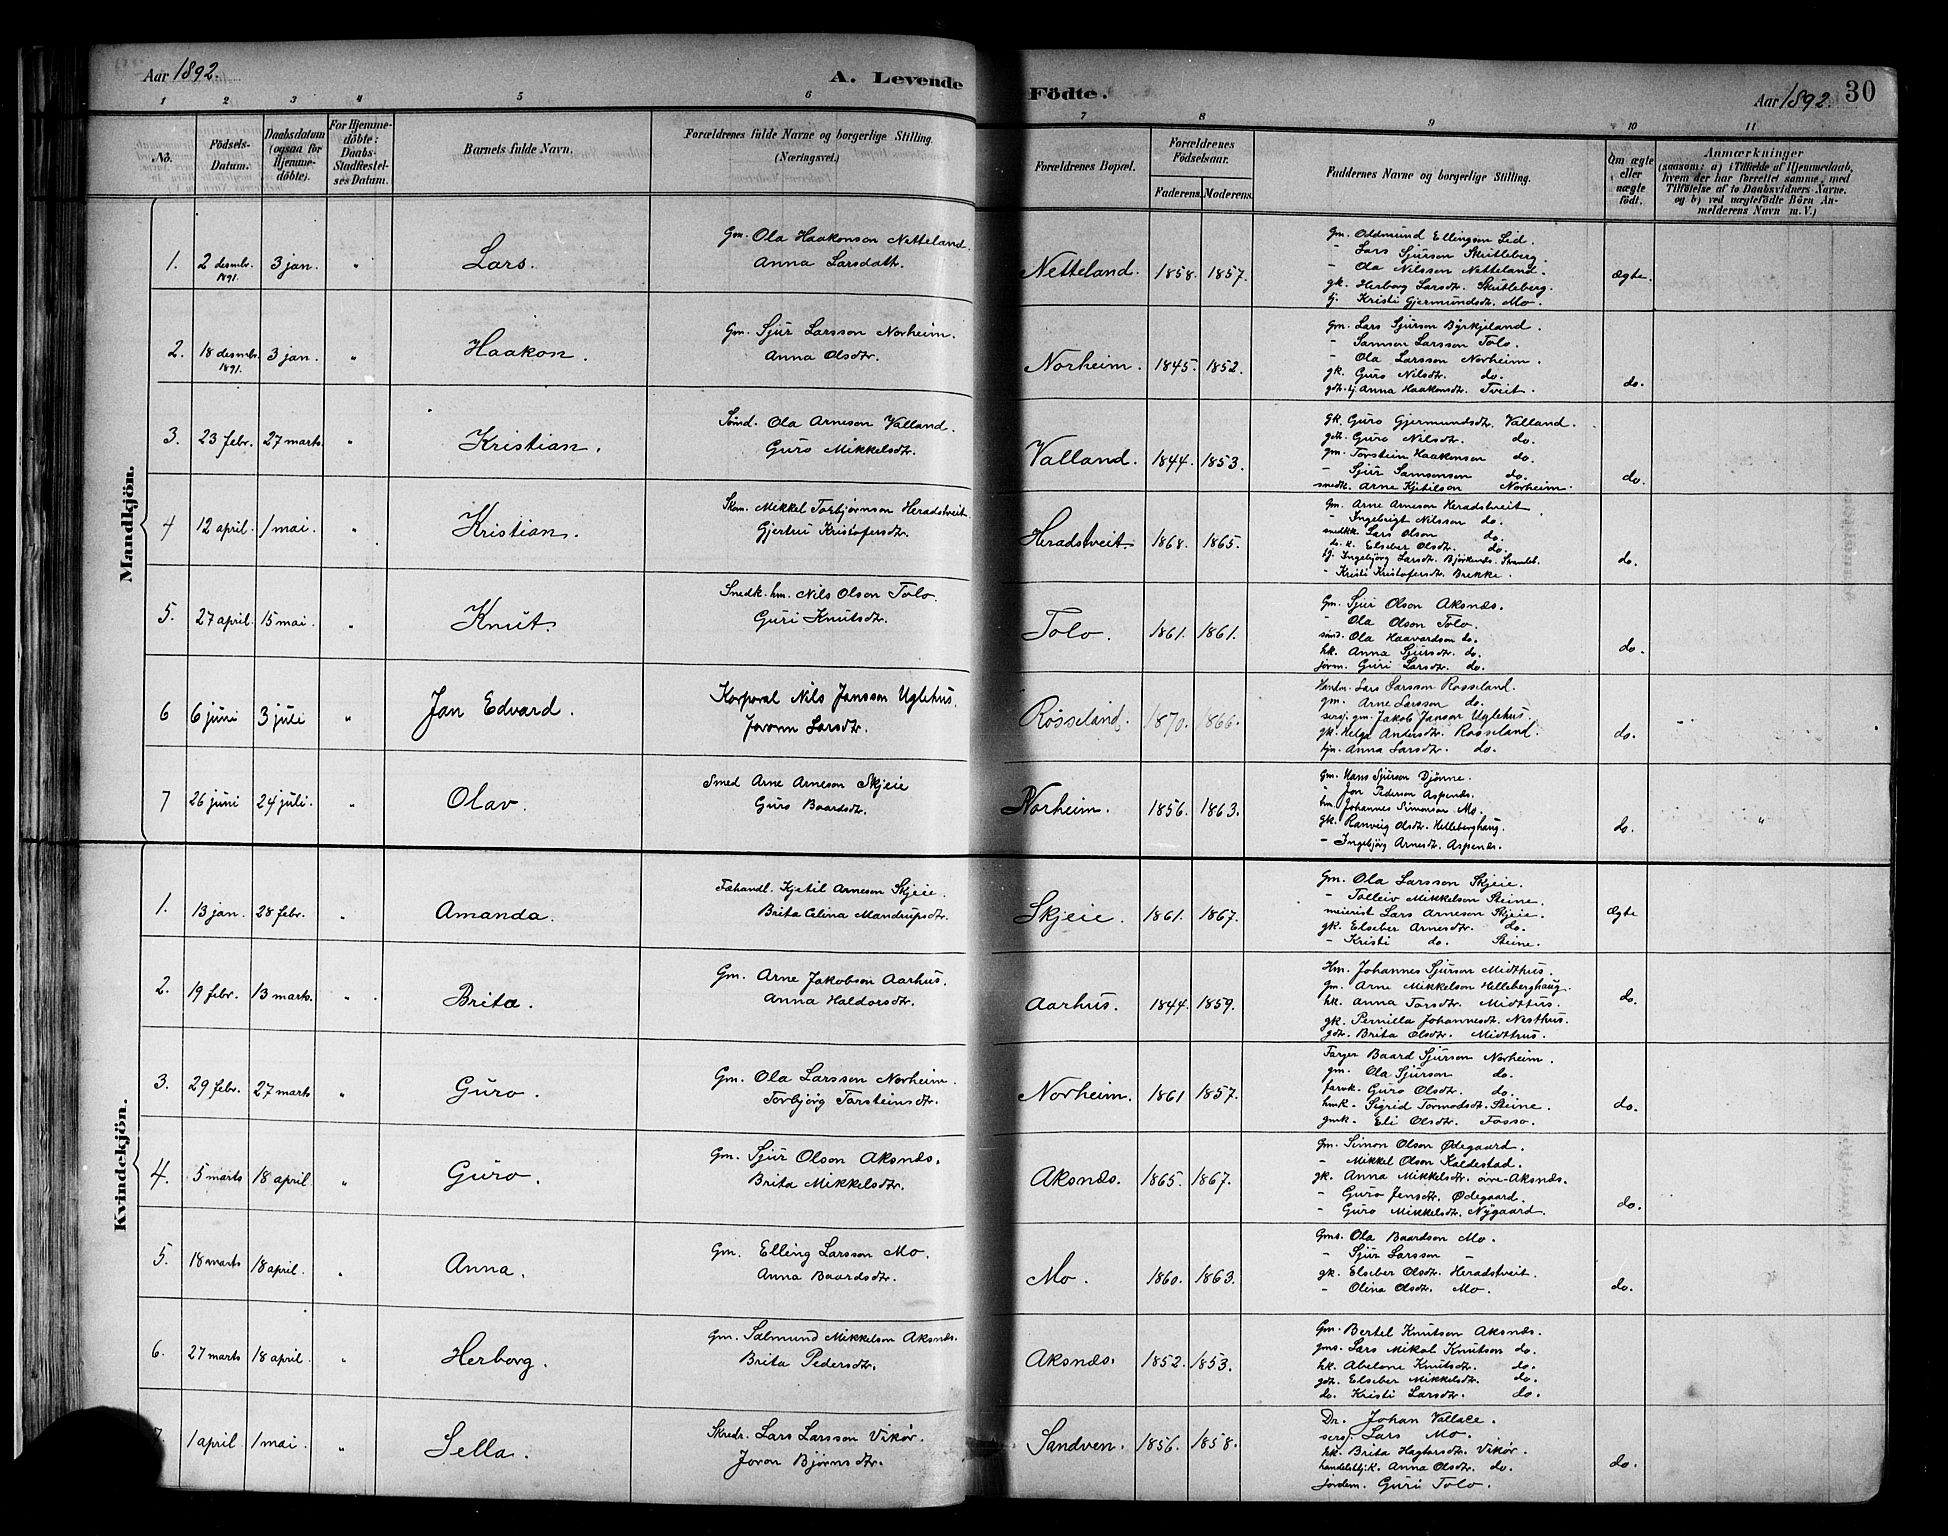 Aar 1892.
A. Levende Födte.
Aar 1892. 30
1 2 3 4 5 6 7 8 9 10 11
No. Födsels-Datum. Daabsdatum (ogsaa for Hjemme-döbte). For Hjemme-döbte: Daabs-Stadfæstel-ses Datum. Barnets fulde Navn. Forældrenes fulde Navne og borgerlige Stilling. (Næringsvei.) Forældrenes Bopæl. Forældrenes Födselsaar. Faderens. Moderens. Faddernes Navne og borgerlige Stilling. Om ægte eller uægte födt. Anmærkninger (saasom: a) i Tilfælde af Hjemmedaab, hvem der har forrettet samme, med Tilföielse af to Daabsvidners Navne. og b) ved uægtefödte Börn An-melderens Navn m. V.)
Mandkjön.
1. 2 desmbr. 1891. 3 jan. " Lars. Gm. Ola Haakonson Netteland. Anna Larsdatt. Netteland. 1858. 1857. ægte.
Gm. Oddmund Ellingson Lid.
- Lars Sjurson Skutleberg.
- Ola Nilsson Netteland.
gk. Herborg Larsdtr. Skutleberg.
tj. Kristi Gjermundsdt. Mo.
2. 18 desmbr. 1891. 3 jan. " Haakon. Gm. Sjur Larsson Norheim. Anna Olsdtr. Norheim. 1845. 1852. do.
Gm. Lars Sjurson Byrkjeland.
- Samson Larsson Tolo.
- Ola Larsson Norheim.
gk. Guro Nilsdtr. do.
gdt. tj Anna Haakonsdtr. Tveit.
3. 23 febr. 27 marts " Kristian. Smd. Ola Arneson Valland. Guro Mikkelsdtr. Valland. 1844. 1853. do.
gk. Guro Gjermundsdtr. Valland.
gdt. Guro Nilsdtr. do.
gm. Torstein Haakonson do.
- Sjur Samsonson do.
smedk. Arne Kjetilson Norheim.
4 12 april. 1 mai. " Kristian. Skom. Mikkel Torbjørnson Heradstveit. Gjertrui Kristofersdtr. Heradstveit 1868. 1865. do.
Gm. Arne Arneson Heradstveit.
- Ingebrigt Nilsson do.
snedkk. Lars Olson do.
do. k. Elseber Olsdtr. do.
tj. Ingebjørg Larsdtr. Bjørkenes. Strandeb.
- Kristi Kristofersdtr. Brekke.
5. 27 april. 15 mai. " Knut. Snedk. hm. Nils Olson Tolo. Guri Knutsdtr. Tolo. 1861. 1861. do.
Gm. Sjur Olson Aksnæs.
- Ola Olson Tolo.
smd. Ola Haavardson do.
hk. Anna Sjursdtr. do.
jorm. Guri Larsdtr. do.
6 6 juni 3 juli " Jan Edvard. Korporal Nils Jansson Uglehus. Joronn Larsdtr. Rosseland. 1870. 1866. do.
Handm. Lars Larsson Rosseland.
gm. Arne Larsson do.
serg. gm. Jakob Janson Uglehus.
gk. Helga Andersdtr. Rosseland.
tjn. Anna Larsdtr. do.
7 26 juni 24 juli. " Olav. Smed Arne Arneson Skjeie Guro Baardsdtr. Norheim. 1856. 1863. do. "
Gm. Hans Sjurson Djønne.
- Jon Pederson Aspenæs.
hm. Johannes Simonson Mo.
gk. Ranveig Olsdtr. Helleberghaug.
- Ingebjørg Arnesdtr. Aspenæs.
Kvindekjön.
1. 13 jan. 28 febr. " Amanda. Fæhandl. Kjetil Arneson Skjeie. Brita Celina Mandrupsdtr. Skjeie. 1861. 1867. ægte
Gm. Ola Larsson Skjeie.
- Tolleiv Mikkelson Steine.
meierist Lars Arneson Skjeie.
gk. Elseber Arnesdtr. do.
- Kristi do. Steine.
2. 19 febr. 13 marts. " Brita. Gm. Arne Jakobson Aarhus. Anna Haldorsdtr. Aarhus. 1844. 1859. do.
Hm. Johannes Sjurson Midthus.
Gm. Arne Mikkelson Helleberghaug.
hk. Anna Torsdtr. Midthus.
gk. Pernilla Johannesdtr. Nesthus.
gdtr. Brita Olsdtr. Midthus.
3. 29 febr. 27 marts " Guro. Gm. Ola Larsson Norheim. Torbjørg Torsteinsdtr. Norheim. 1861 1857. do.
Farger Baard Sjurson Norheim.
gm. Ola Sjurson do.
farvk. Guro Olsdtr. do.
hmk. Sigrid Tormodsdtr. Steine.
gmk. Eli Olsdtr. Fosso.
4. 5 marts 18 april " Guro. Gm. Sjur Olson Aksnæs. Brita Mikkelsdtr. Aksnæs. 1865. 1867. do.
Gm. Simon Olson Ødegaard.
- Mikkel Olson Kaldestad.
gk. Anna Mikkelsdtr. øvre-Aksnæs.
- Guro Jensdtr. Ødegaard.
- Guro Mikkelsdtr. Nygaard.
5. 18 marts 18 april. " Anna. Gm. Elling Larsson Mo. Anna Baardsdtr. Mo. 1860. 1863. do.
Gms. Ola Baardson Mo.
- Sjur Larsson -
gk. Elseber Olsdtr. Heradstveit.
- Olina Olsdtr. Mo.
6. 27 marts 18 april. " Herborg. Gm. Salmund Mikkelson Aksnæs. Brita Pedersdtr. Aksnæs. 1852. 1853.
Gm. Bertel Knutson Aksnæs.
gms. Lars Mikal Knutson do.
hk. Abelone Knutsdtr. do.
gdt. Elseber Mikkelsdtr. do.
do. Kristi Larsdtr. do.
7. 1 april 1 mai. " Sella. Skrædr. Lars Larsson Vikør. Joron Bjørnsdtr. Sandven. 1856. 1858. do.
Dr. Johan Vallace.
serg. Lars Mo.
hk. Brita Hagtorsdtr. Vikør.
handelsbtjk. Anna Olsdtr. do.
jordem. Guri Tolo.